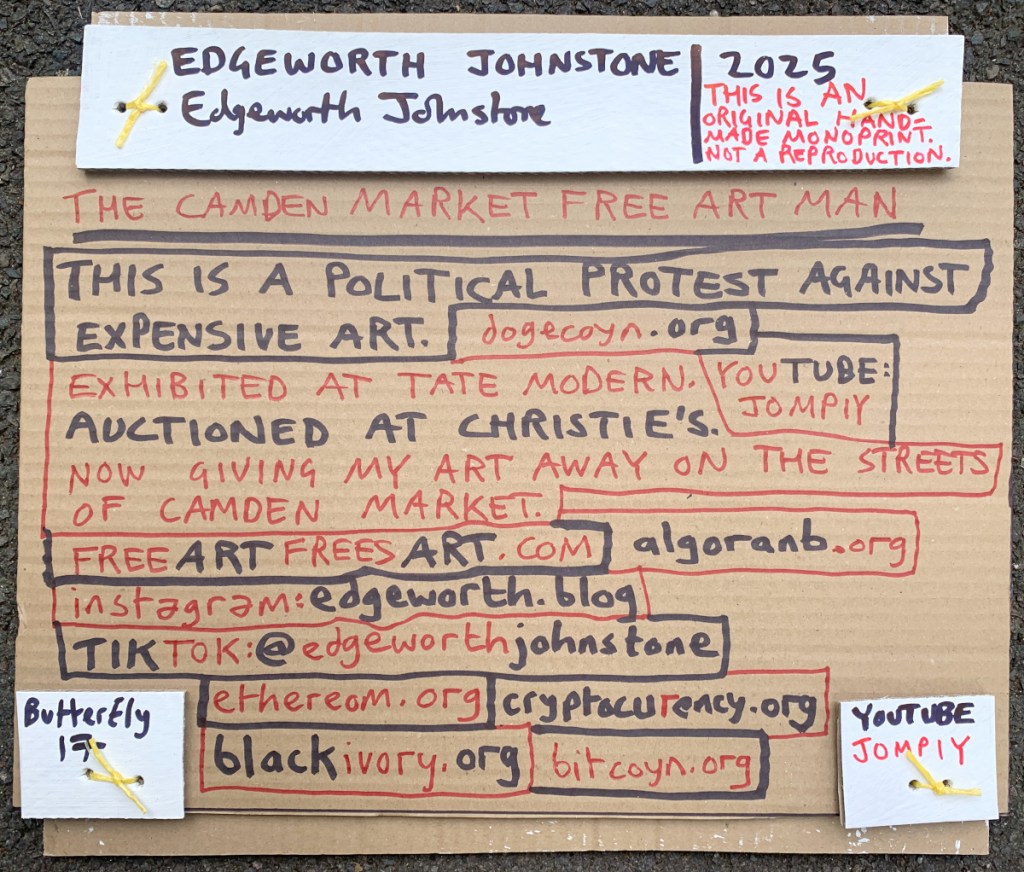 EDGEWORTH JOHNSTONE
Edgeworth Johnstone
2025
THIS IS AN
ORIGINAL HAND-
MADE MONOPRINT.
NOT A REPRODUCTION.
THE CAMDEN MARKET FREE ART MAN
THIS IS A POLITICAL PROTEST AGAINST
EXPENSIVE ART.
dogecoyn.org
EXHIBITED AT TATE MODERN.
YOUTUBE:
JOMPIY
AUCTIONED AT CHRISTIE'S.
NOW GIVING MY ART AWAY ON THE STREETS
OF CAMDEN MARKET.
FREEARTFREESART.COM
algoranb.org
instagram:edgeworth.blog
TIKTOK:@edgeworthjohnstone
ethereom.org
cryptocurency.org
blackivory.org
bitcoyn.org
Butterfly
YOUTUBE
JOMPIY